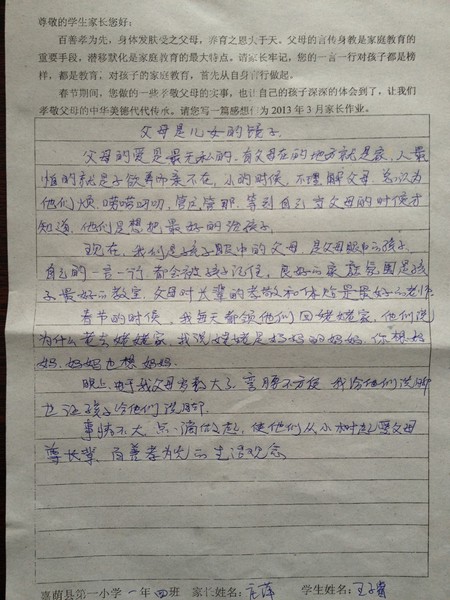 尊敬的学生家长您好：
百善孝为先，身体发肤受之父母，养育之恩大于天。父母的言传身教是家庭教育的
重要手段，潜移默化是家庭教育的最大特点。请家长牢记，您的一言一行对孩子都是榜
样，都是教育，对孩子的家庭教育，首先从自身言行做起。
春节期间，您做的一些孝敬父母的实事，也让自己的孩子深深的体会到了，让我们
孝敬父母的中华美德代代传承。请您写一篇感想作为 2013 年 3 月家长作业。
父母是儿女的镜子
父母的爱是最无私的，有父母在的地方就是家，人最
怕的就是子欲养而亲不在，小的时候，不理解父母，总认为
他们烦，唠唠叨叨，管这管那，等到自己当父母的时候才
知道，他们是想把最好的给孩子。
现在，我们是孩子眼中的父母，是父母眼中的孩子，
自己的一言一行，都会被孩子记住，良好的家庭氛围是孩
子最好的教室，父母对长辈的孝敬和体贴是最好的老师
春节的时候，我每天都领他们回姥姥家，他们说
为什么总去姥姥家，我说姥姥是妈妈的妈妈，你想妈
妈，妈妈也想妈妈。
晚上，由于我父母岁数大了，弯腰不方便，我给他们洗脚
也让孩子给他们洗脚。
事情不大，点滴做起，使他们从小树起爱父母
尊长辈，百善孝为先的生活观念
嘉荫县第一小学 一 年 四 班 家长姓名： 学生姓名：王子